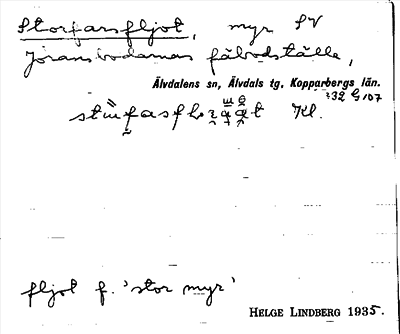 Storfarsfljot, myr SV
Joransbodarnas fäbodställe,
Älvdalens sn, Älvdals tg, Kopparbergs län.
332 G 107
Kl.
fljot f. 'stor myr'
HELGE LINDBERG 1935.